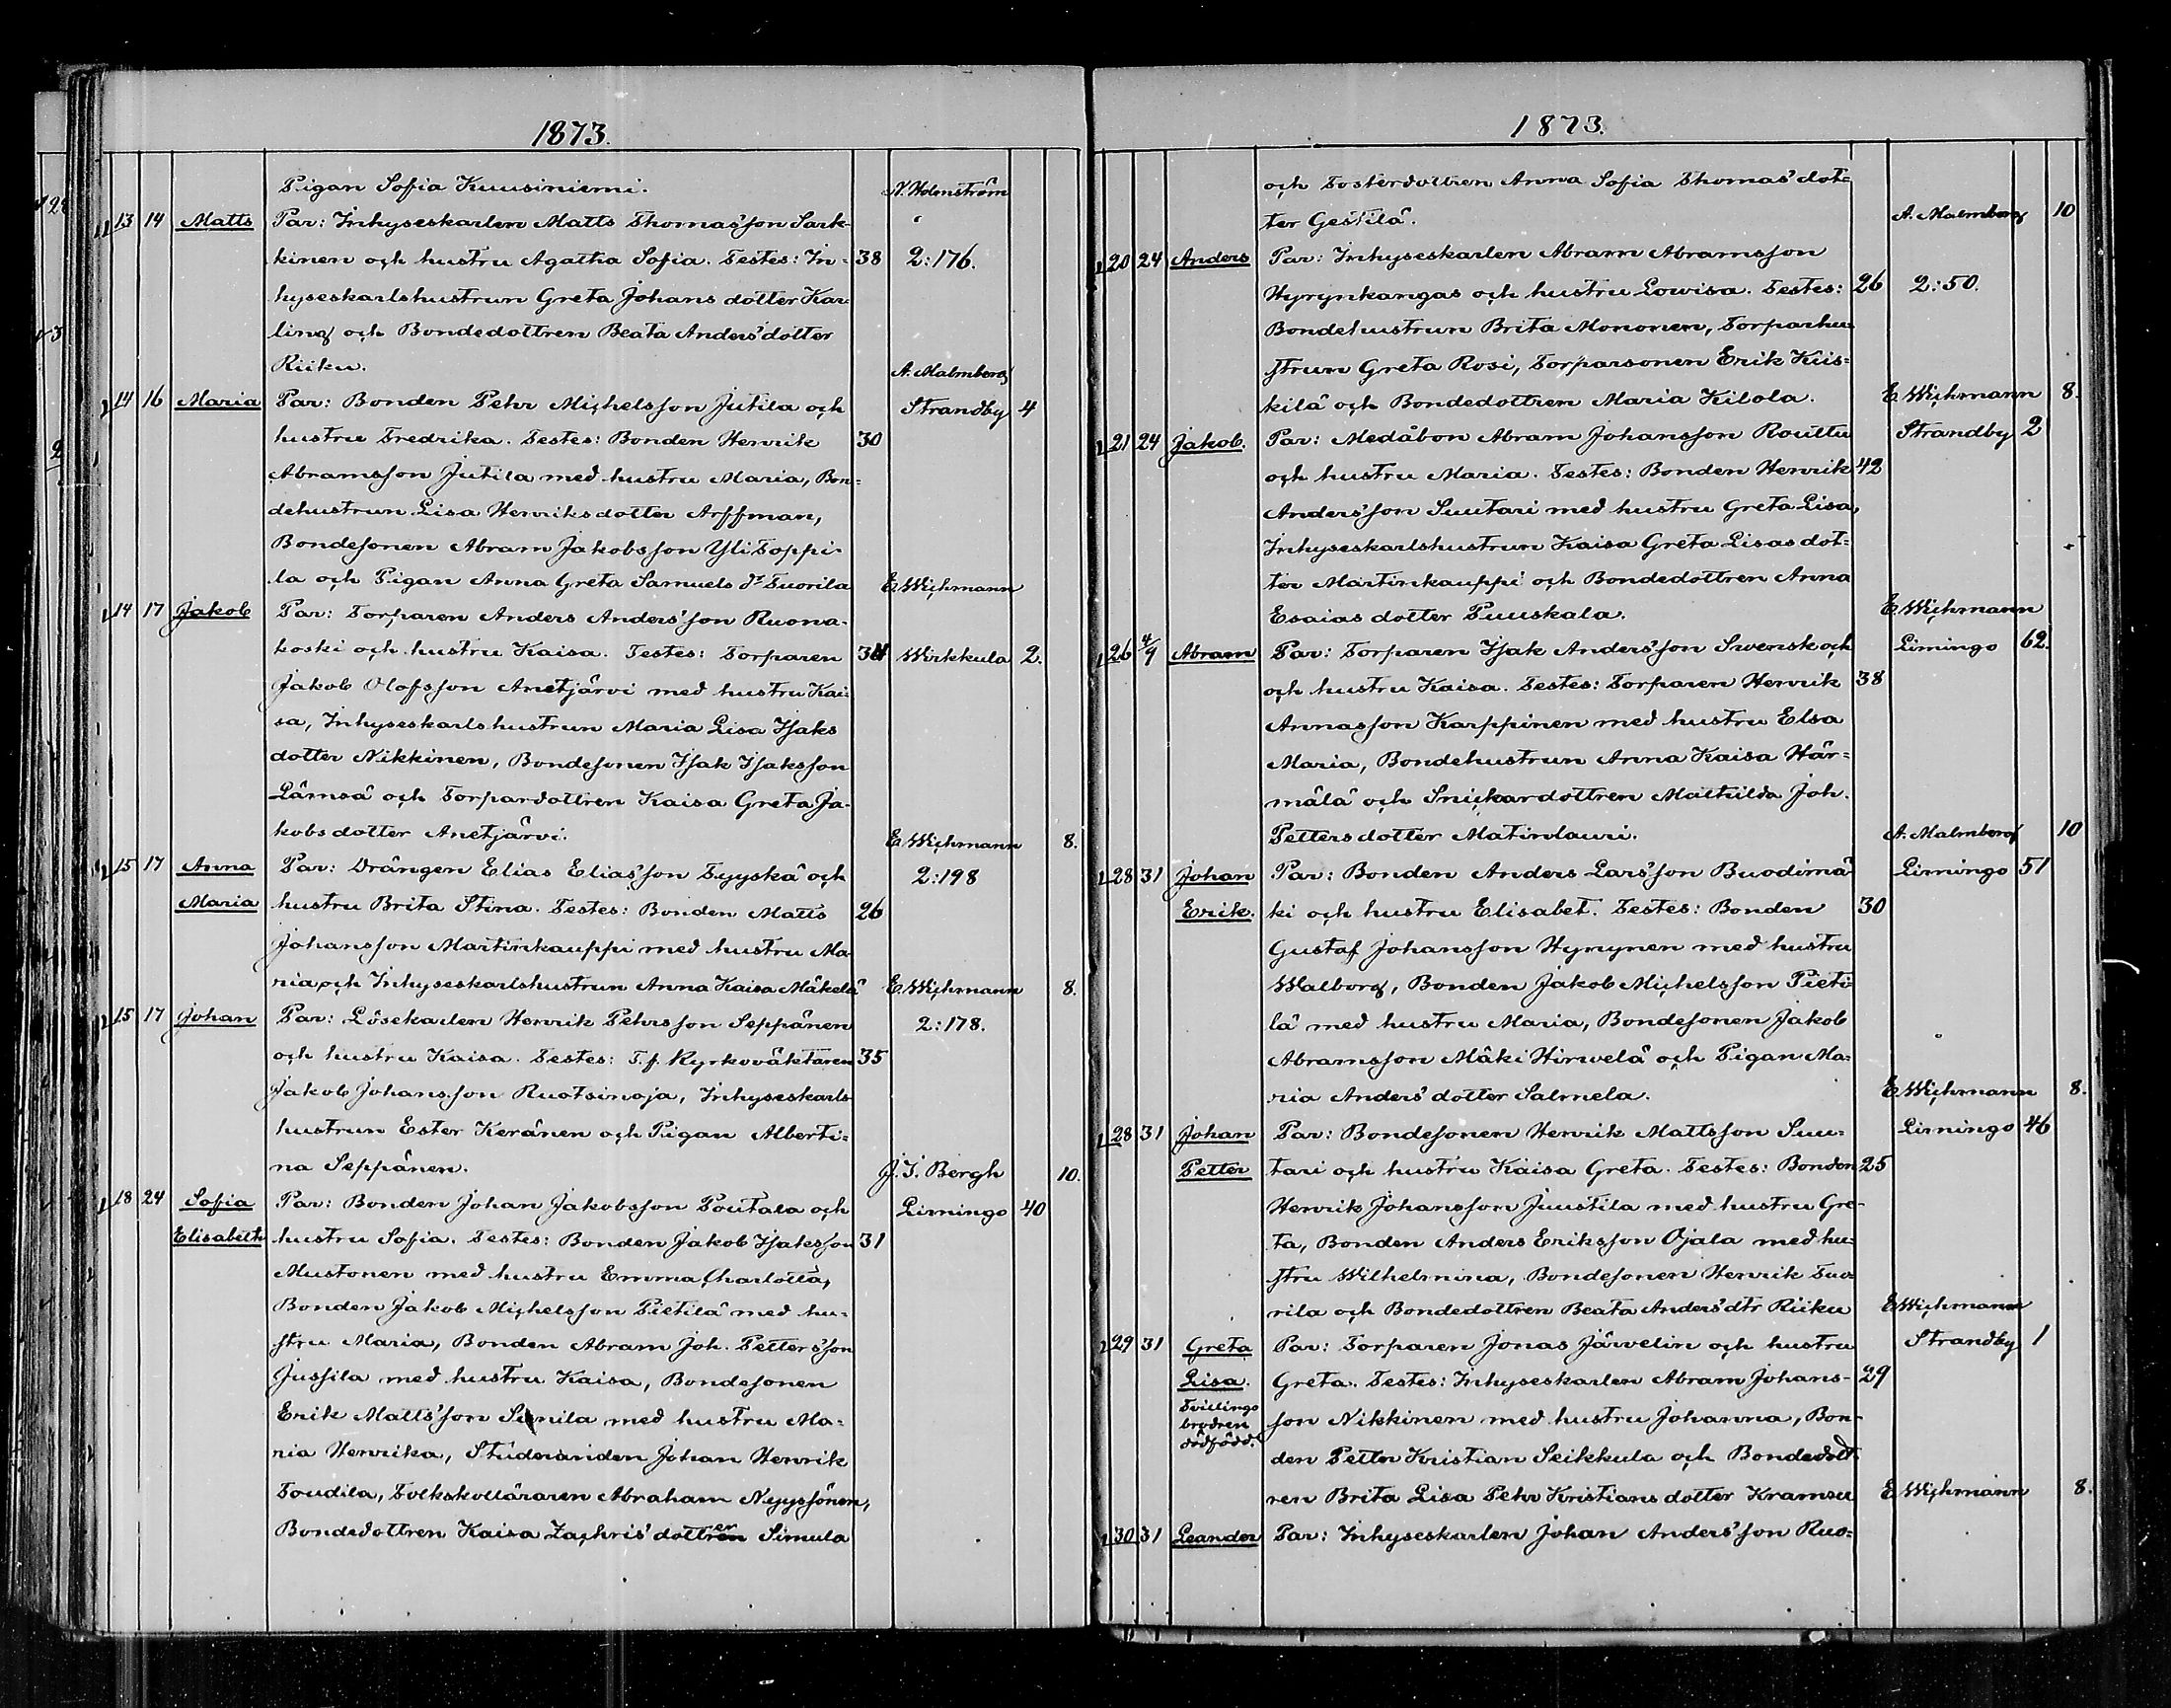 1873.
Pigan Sofia Kuusiniemi. N. Holmström
13 14 Matts Par: Inhyseskarlen Matts Thomas'son Sark- "
kinen och hustru Agatha Sofia. Testes: In- 38 2:176.
hyseskarlshustrun Greta Johans dotter Kar-
ling och Bondedottren Beata Anders'dotter
Riiku. A. Malmberg
14 16 Maria Par: Bonden Pehr Michelsson Jutila och Strandby 4
hustru Fredrika. Testes: Bonden Henrik 30
Abramsson Jutila med hustru Maria, Bon-
dehustrun Lisa Henriksdotter Arffman,
Bondesonen Abram Jakobsson YliToppi-
la och Pigan Anna Greta Samuels dr Tuorila E. Wichmann
14 17 Jakob Par: Torparen Anders Anders'son Ruona-
koski och hustru Kaisa. Testes: Torparen 34 Wirkkula 2.
Jakob Olofsson Anetjärvi med hustru Kai-
sa, Inhyseskarlshustrun Maria Lisa Isaks
dotter Nikkinen, Bondesonen Isak Isaksson
Lämsä och Torpardottren Kaisa Greta Ja-
kobsdotter Anetjärvi. E. Wichmann 8.
15 17 Anna Par: Drängen Elias Elias'son Tyyskä och 2:198
Maria hustru Brita Stina. Testes: Bonden Matts 26
Johansson Martinkauppi med hustru Ma-
ria och Inhyseskarlshustrun Anna Kaisa Mäkelä E. Wichmann 8.
15 17 Johan Par: Lösekarlen Henrik Pehrsson Seppänen 2:178.
och hustru Kaisa. Testes: T.f. Kyrkoväktaren 35
Jakob Johansson Ruotsinoja, Inhyseskarls-
hustrun Ester Keränen och Pigan Alberti-
na Seppänen. J. I. Bergh 10.
18 24 Sofia Par: Bonden Johan Jakobsson Poutala och Limingo 40
Elisabeth hustru Sofia. Testes: Bonden Jakob Isaksson 31
Mustonen med hustru Emma Charlotta,
Bonden Jakob Michelsson Pietilä med hu-
stru Maria, Bonden Abram Joh. Petters'son
Jussila med hustru Kaisa, Bondesonen
Erik Matts'son Sipila med hustru Ma-
ria Henrika, Studeranden Johan Henrik
Toudila, Folkskolläraren Abraham Nyyssönen,
Bondedottren Kaisa Zachris'dotter Simula
1873.
och Fosterdottren Anna Sofia Thomas'dot-
ter Gestilä. A. Malmberg 10
20 24 Anders Par: Inhyseskarlen Abram Abramsson
Hyrynkangas och hustru Lowisa. Testes: 26 2:50.
Bondehustrun Brita Mononen, Torparhu-
strun Greta Rosi, Torparsonen Erik Kiis-
kilä och Bondedottren Maria Kilola. E. Wichmann 8.
21 24 Jakob. Par: Medåbon Abram Johansson Routtu Strandby 2
och hustru Maria. Testes: Bonden Henrik 42
Anders'son Suutari med hustru Greta Lisa,
Inhyseskarlshustrun Kaisa Greta Lisasdot-
ter Martinkauppi och Bondedottren Anna
Esaias dotter Puuskala. E. Wichmann
26 4/9 Abram Par: Torparen Isak Anders'son Svensk och Limingo 62.
och hustru Kaisa. Testes: Torparen Henrik 38
Annasson Karppinen med hustru Elsa
Maria, Bondehustrun Anna Kaisa Här-
mälä och Snickardottren Mathilda Joh.
Pettersdotter Matinlauri. A. Malmberg 10
28 31 Johan Par: Bonden Anders Lars'son Buodimä- Limingo 51
Erik. ki och hustru Elisabet. Testes: Bonden 30
Gustaf Johansson Hyrynen med hustru
Walborg, Bonden Jakob Michelsson Pieti-
lä med hustru Maria, Bondesonen Jakob
Abramsson Mäki Hirvelä och Pigan Ma-
ria Anders'dotter Salmela. E. Wichmann 8.
28 31 Johan Par: Bondesonen Henrik Mattsson Suu- Limingo 46
Petter tari och hustru Kaisa Greta. Testes: Bonden 25
Henrik Johansson Juustila med hustru Gre-
ta, Bonden Anders Eriksson Ojala med hu-
stru Wilhelmina, Bondesonen Henrik Tuo-
rila och Bondedottren Beata Anders'dtr Riiku E. Wichmann
29 31 Greta Par: Torparen Jonas Järvelin och hustru Strandby 1
Lisa. Greta. Testes: Inhyseskarlen Abram Johans- 29
Tvillings
brodren son Nikkinen med hustru Johanna, Bon-
dödfödd. den Petter Kristian Seikkula och Bondedott-
ren Brita Lisa Pehr Kristians dotter Kramsu E. Wichmann 8.
30 31 Leander Par: Inhyseskarlen Johan Anders'son Ruo-